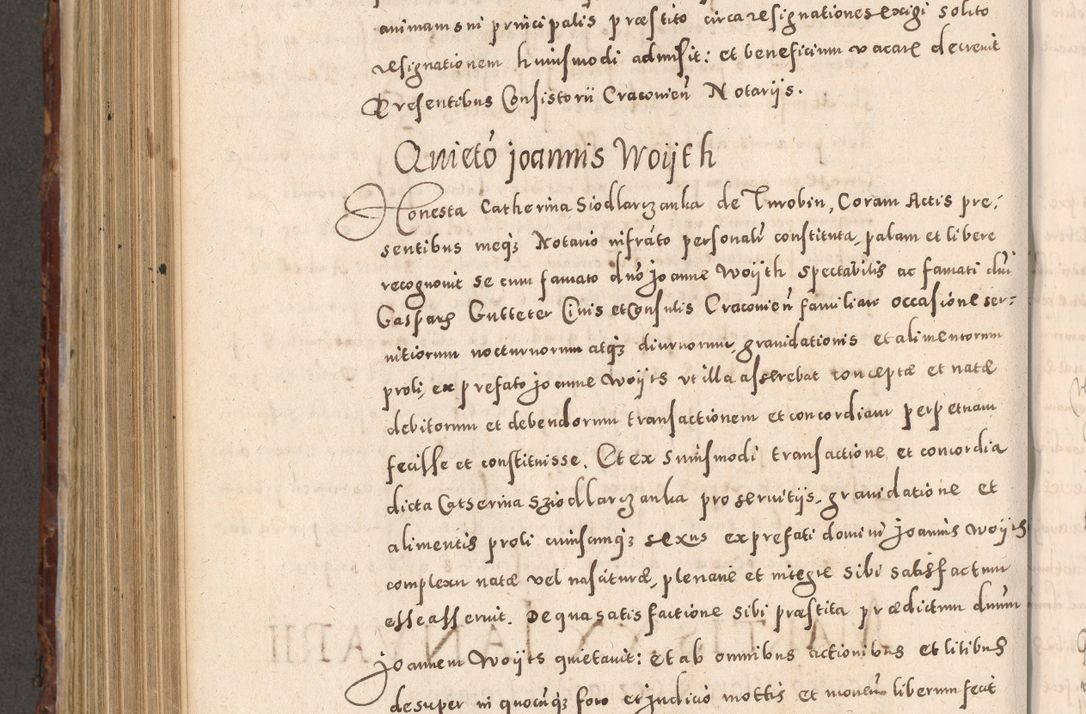 animam sni principalis præstito circa resignationes exigi solito
resignationem huiusmodi admisit: et beneficium vacare decrevit
Presentibus Consistorii Cracovień Notarijs.
Quietó joannis Woijth
Honesta Catherina Siodlarczanka de Turobin, Coram Actis pre:
sentibus meq3 Notario infrato personali constituta, palam et libere
recognovit se cum famato dno joanne Woijth spectabilis ac famati dni
Gasparis Gutteter Civis et Consulis Cracovień familiaro occasione ser:
vitiorum nocturnorum atq3 diurnorum, gravidationis et alimentorum
proli, ex prefato joanne Woijts vt illa asserebat conceptæ et natæ
debitorum et debendorum transactionem et concordiam perpetuam
fecisse et constituisse. Et ex huiusmodi transactione et concordia
dicta Catherina Sziodllarczanka pro servitijs, gravidatione et
alimentis proli cuiuscunq3 sexus ex prefati domini joannis Woijts
complexu natæ vel nasciturae, plenarie et integre sibi satisfactum
esse asseruit. De qua satisfactione sibi præstita prædictum dnum
joannem Woijts quietavit: et ab omnibus actionibus et litibus
desuper in quocuq3 foro et judicio mottis et movenń liberum fecit